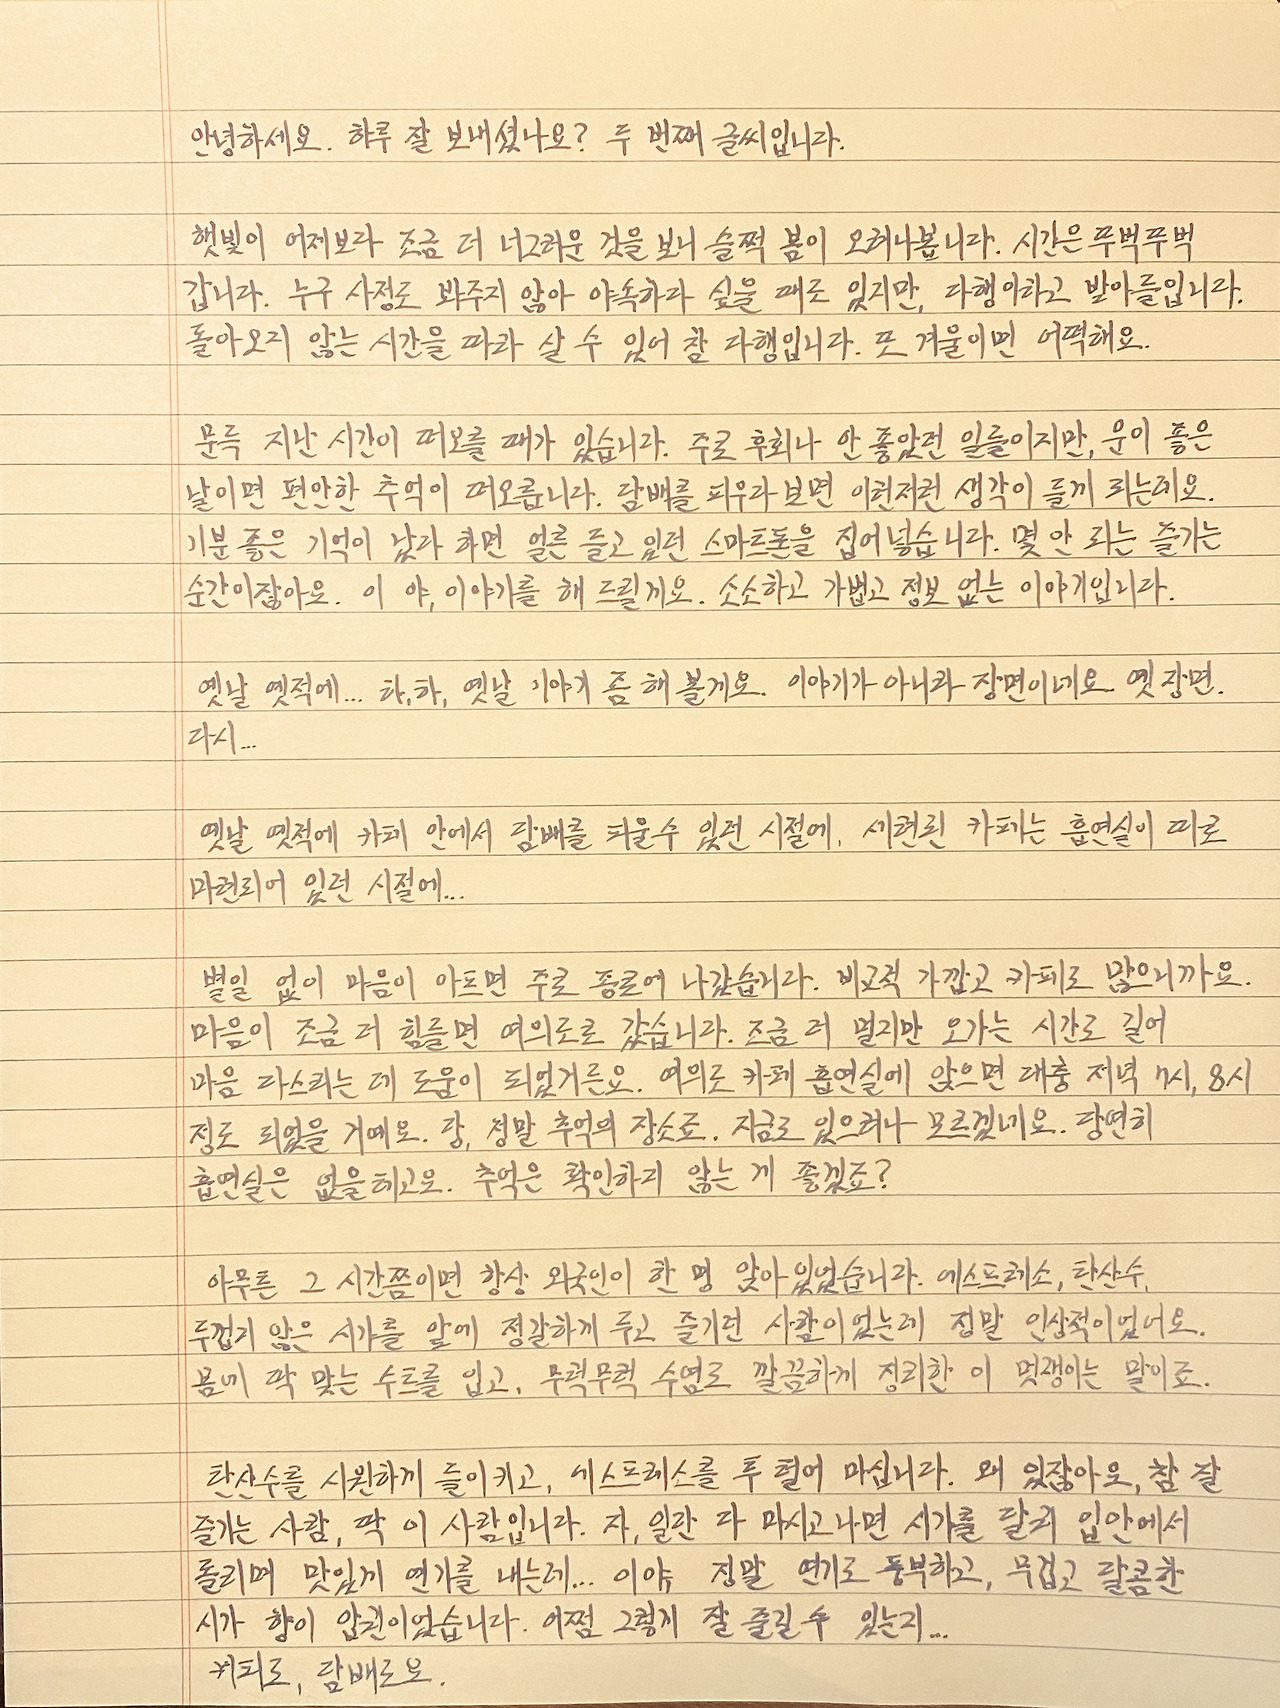 안녕하세요. 하루 잘 보내셨나요? 두 번째 글씨입니다.
햇빛이 어제보다 조금 더 너그러운 것을 보니 슬쩍 봄이 오려나봅니다. 시간은 뚜벅뚜벅
갑니다. 누구 사정도 봐주지 않아 야속하다 싶을 때도 있지만, 다행이라고 받아들입니다.
돌아오지 않는 시간을 따라 살 수 있어 참 다행입니다. 또 겨울이면 어떡해요.
문득 지난 시간이 떠오를 때가 있습니다. 주로 후회나 안 좋았던 일들이지만, 운이 좋은
날이면 편안한 추억이 떠오릅니다. 담배를 피우다 보면 이런저런 생각이 들게 되는데요.
기분 좋은 기억이 났다 하면 얼른 들고 있던 스마트폰을 집어넣습니다. 몇 안 되는 즐기는
순간이잖아요. 이 야, 이야기를 해 드릴게요. 소소하고 가볍고 정보 없는 이야기입니다.
옛날 옛적에... 하, 하, 옛날 이야기 좀 해 볼게요. 이야기가 아니라 장면이네요. 옛 장면.
다시...
옛날 옛적에 카페 안에서 담배를 피울 수 있던 시절에, 세련된 카페는 흡연실이 따로
마련되어 있던 시절에...
별일 없이 마음이 아프면 주로 종로에 나갔습니다. 비교적 가깝고 카페도 많으니까요.
마음이 조금 더 힘들면 여의도로 갔습니다. 조금 더 멀지만 오가는 시간도 길어
마음 다스리는 데 도움이 되었거든요. 여의도 카페 흡연실에 앉으면 대충 저녁 7시, 8시
정도 되었을 거예요. 당, 정말 추억의 장소죠. 지금도 있으려나 모르겠네요. 당연히
흡연실은 없을테고요. 추억은 확인하지 않는 게 좋겠죠?
아무튼 그 시간쯤이면 항상 외국인이 한 명 앉아 있었습니다. 에스프레소, 탄산수,
두껍지 않은 시가를 앞에 정갈하게 두고 즐기던 사람이었는데 정말 인상적이었어요.
몸에 딱 맞는 수트를 입고, 무럭무럭 수염도 깔끔하게 정리한 이 멋쟁이는 말이죠.
탄산수를 시원하게 들이키고, 에스프레소를 투 털어 마십니다. 왜 있잖아요, 참 잘
즐기는 사람, 딱 이 사람입니다. 자, 일단 다 마시고나면 시가를 달궈 입안에서
돌리며 맛있게 연기를 내는데... 이야 정말 연기도 풍부하고, 무겁고 달콤한
시가 향이 압권이었습니다. 어쩜 그렇게 잘 즐길 수 있는지...
커피도, 담배도요.